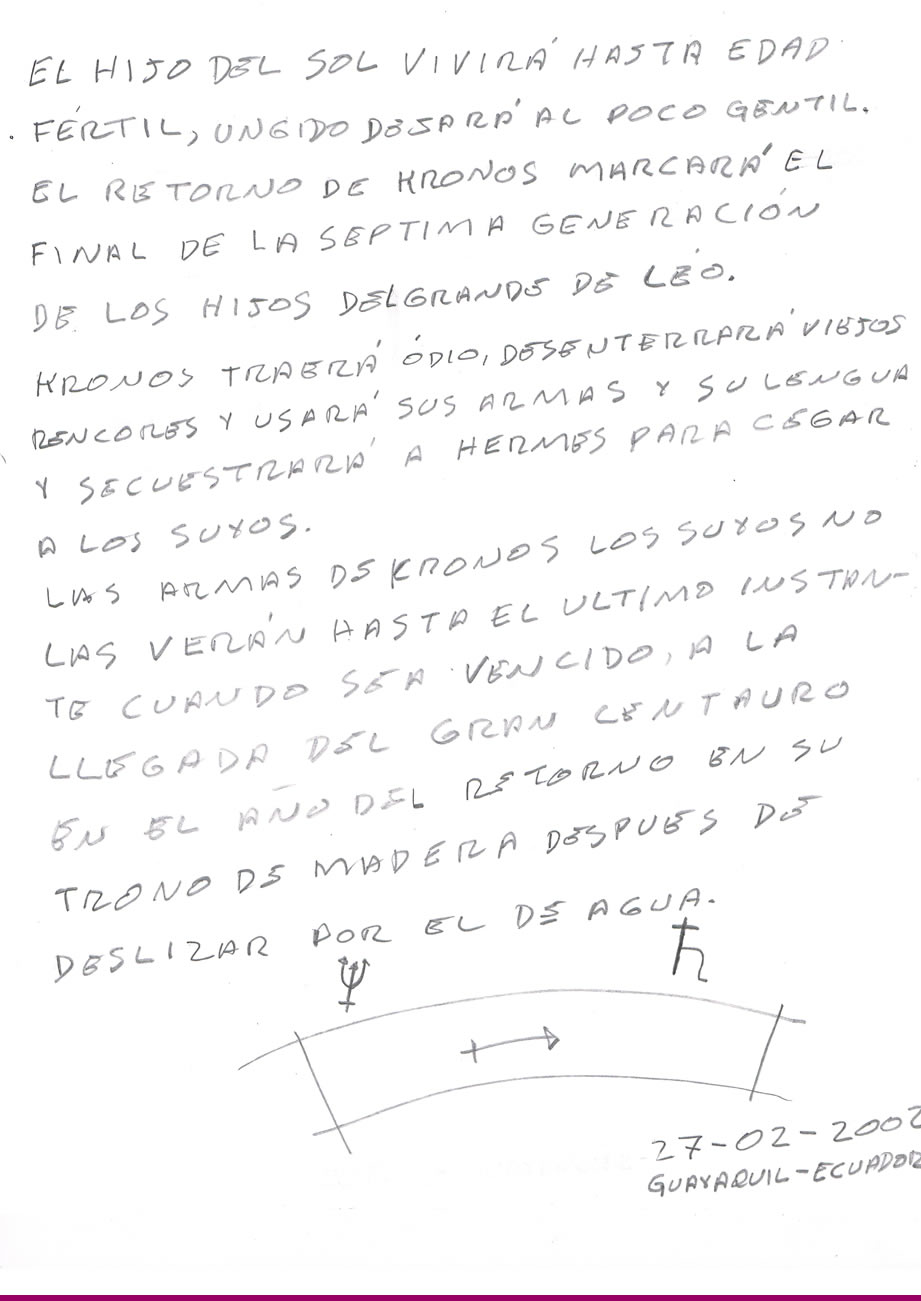 EL HIJO DEL SOL VIVIRÁ HASTA EDAD
FÉRTIL, UNGIDO DEJARÁ AL POCO GENTIL.
EL RETORNO DE KRONOS MARCARÁ EL
FINAL DE LA SEPTIMA GENERACIÓN
DE LOS HIJOS DEL GRANDE DE LEO.
KRONOS TRAERÁ ÓDIO, DESENTERRARÁ VIEJOS
RENCORES Y USARÁ SUS ARMAS Y SU LENGUA
Y SECUESTRARÁ A HERMES PARA CEGAR
A LOS SUYOS.
LAS ARMAS DE KRONOS LOS SUYOS NO
LAS VERÁN HASTA EL ULTIMO INSTAN-
TE CUANDO SEA VENCIDO, A LA
LLEGADA DEL GRAN CENTAURO
EN EL AÑO DEL RETORNO EN SU
TRONO DE MADERA DESPUES DE
DESLIZAR POR EL DE AGUA.
♆ ♄
27-02-2002
GUAYAQUIL-ECUADOR